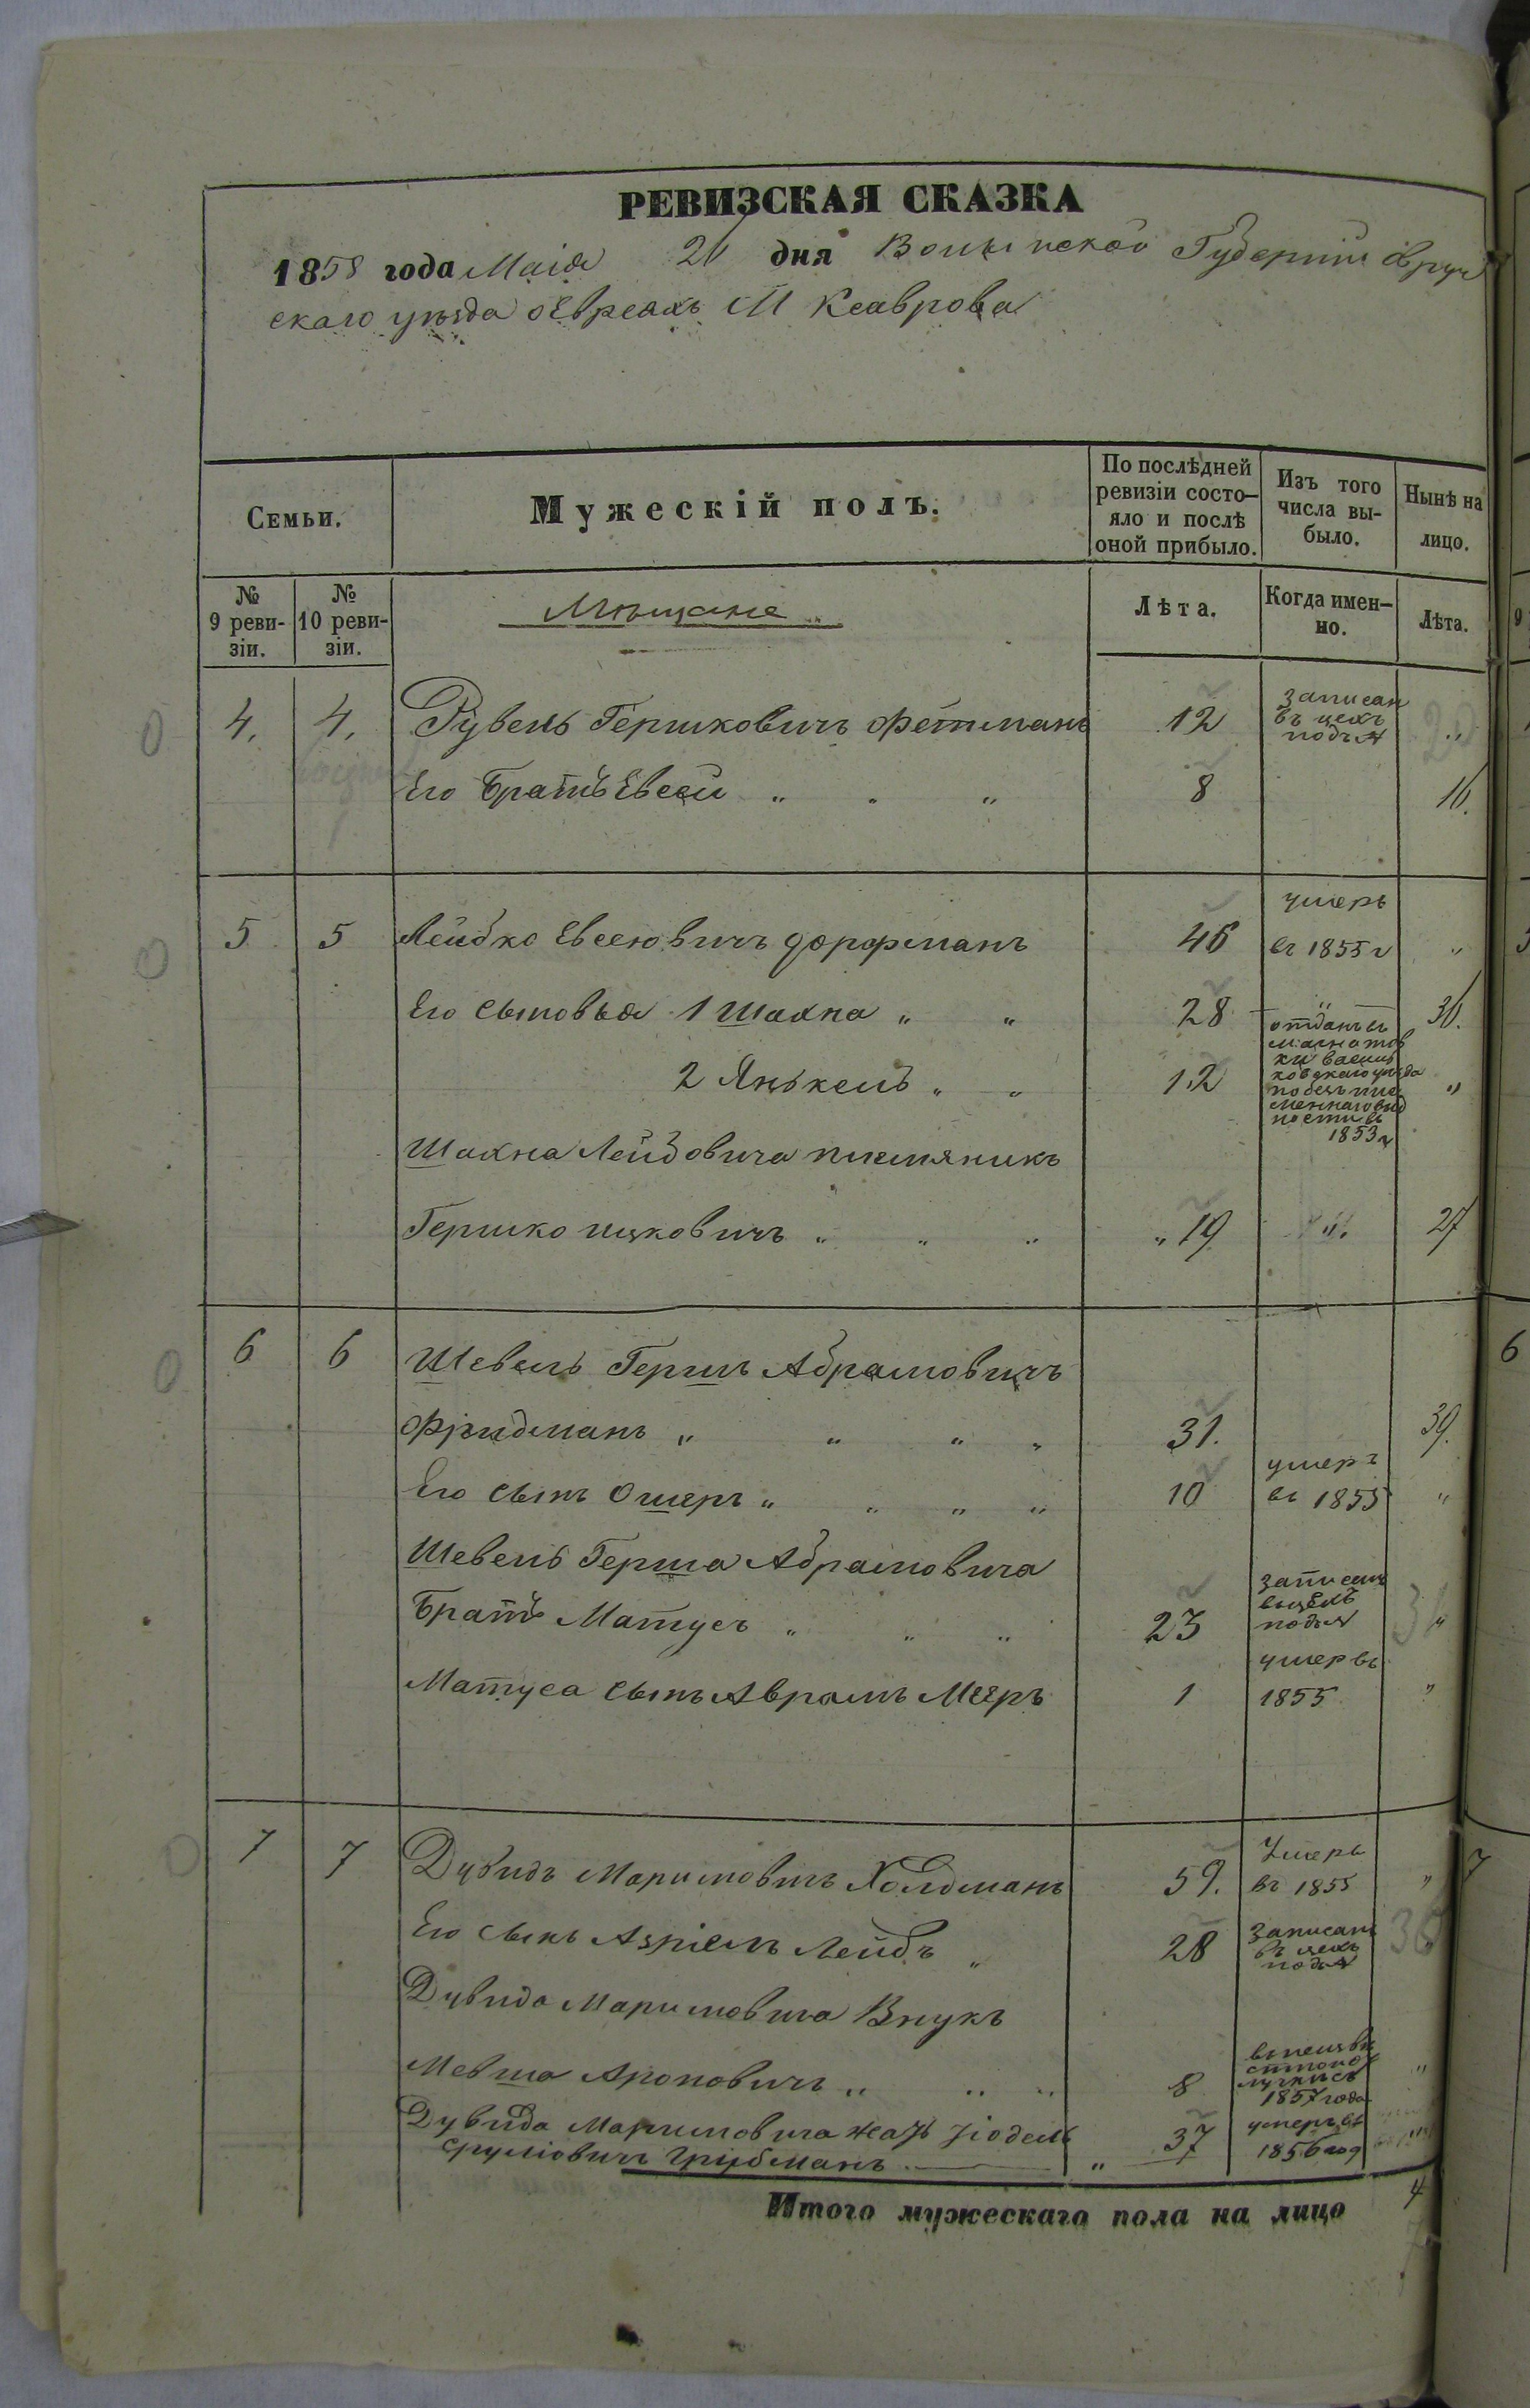 РЕВИЗСКАЯ СКАЗКА
1858 года Маія 21 дня Волынской Губерніи Овруч
скаго уѣзда о Евреяхъ М Ксаврова
Семьи.
Мужескій полъ.
По послѣдней ревизіи состо-
яло и послѣ оной прибыло.
Изъ того числа вы-
было.
Нынѣ на лицо.
№ 9 реви-
зіи.
№ 10 реви-
зіи.
Мѣщане
Лѣта.
Когда имен-
но.
Лѣта.
4. 4. Рувень Гершковичъ Фетманъ 12 записан въ цехъ под № „
Его Братъ Евсей „ „ „ 8 16.
5 5 Лейбко Евсеювичъ дорфманъ 46 умеръ въ 1855 г „
Его сыновья 1 Шахна „ „ 28 „ 36.
2 Янькель „ „ 12 отданъ 1853 г „
Шахна Лейбовича племяникъ
Гершко ицковичъ „ „ „ „ 19 „. 27
6 6 Шевель Гершъ Абрамовичъ
Фридманъ „ „ „ „ 31. 39.
Его сынъ Ошеръ „ „ „ „ 10 умеръ въ 1855 „
Шевель Герша Абрамовича
Братъ Матусъ „ „ „ 23 записанъ въ цехъ под № „
Матуса сынъ Аврамъ Мееръ 1 умер въ 1855 „
7 7 Дувидъ Маримовичъ Холдманъ 59. Умеръ въ 1855 „
Его сынъ Азріель Лейбъ „ 28 записанъ въ цехъ под № „
Дувида Маримовича Внукъ
Мевша Ароновичъ „ „ „ 8 1857 года „
Дувида Маримовича зять Юдель
Сруліовичъ Грубманъ „ 37 умеръ въ 1856 год „
Итого мужескаго пола на лицо 4